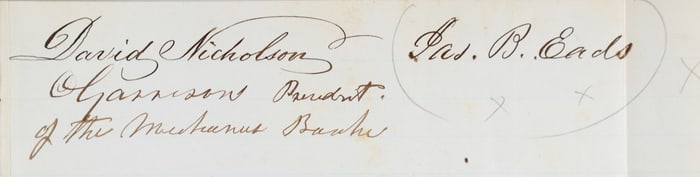 David Nicholson
Jas. B. Eads
O Garrison President.
of the Mechanics Bank